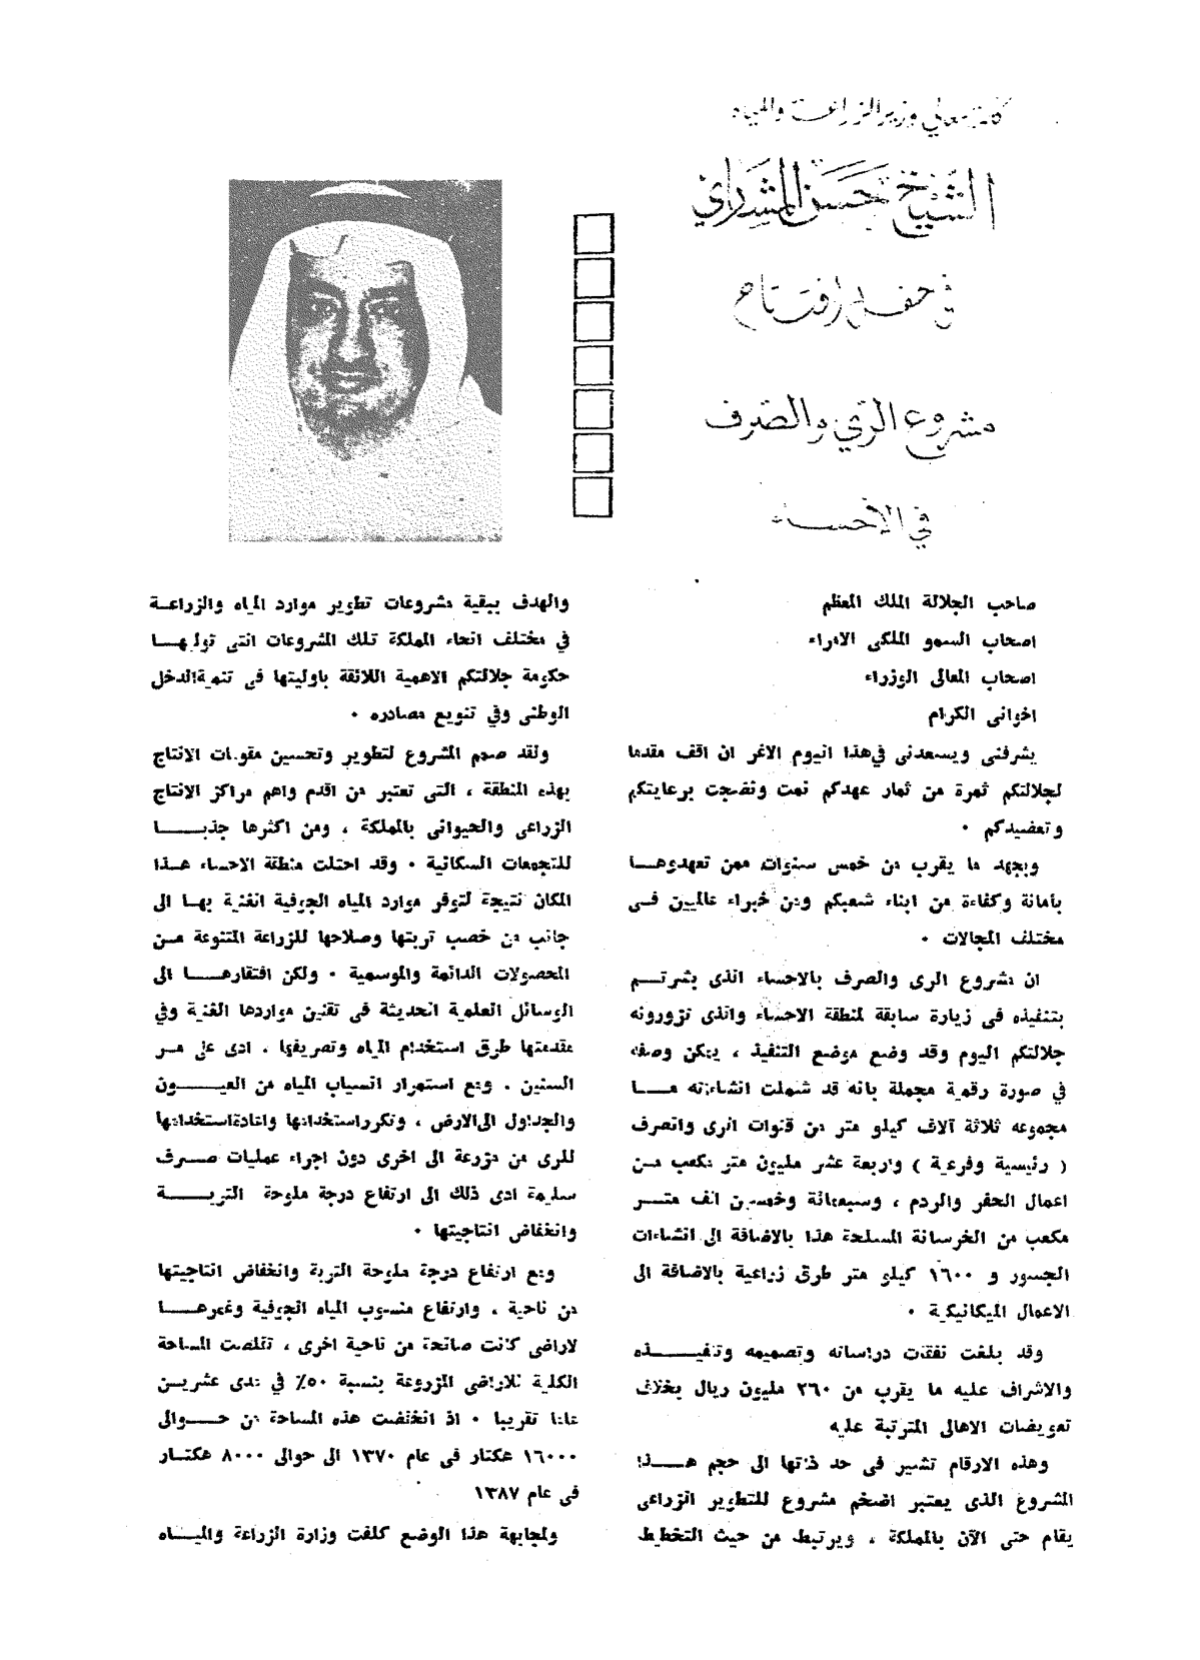 كلمة معالي وزير الزراعة والمياه
الشيخ حسن المشاري
في حفل افتتاح
مشروع الري والصرف
في الاحساء
صاحب الجلالة الملك المعظم
اصحاب السمو الملكى الامراء
اصحاب المعالى الوزراء
اخوانى الكرام
يشرفنى ويسعدنى في هذا اليوم الاغر ان اقف مقدما
لجلالتكم ثمرة من ثمار عهدكم نمت ونضجت برعايتكم
وتعضيدكم ٠
وبجهد ما يقرب من خمس سنوات ممن تعهدوهــا
بأمانة وكفاءة من ابناء شعبكم ومن خبراء عالميين فــى
مختلف المجالات ٠
ان مشروع الرى والصرف بالاحساء الذى بشرتــم
بتنفيذه فى زيارة سابقة لمنطقة الاحساء والذى تزورونه
جلالتكم اليوم وقد وضع موضع التنفيذ ، يمكن وصفه
في صورة رقمية مجملة بانه قد شملت انشاءاته مــا
مجموعه ثلاثة آلاف كيلو متر من قنوات الرى والصرف
( رئيسية وفرعية ) واربعة عشر مليون متر مكعب مــن
اعمال الحفر والردم ، وسبعمائة وخمسين الف متــر
مكعب من الخرسانة المسلحة هذا بالاضافة الى انشاءات
الجسور و ١٦٠٠ كيلو متر طرق زراعية بالاضافة الى
الاعمال الميكانيكية ٠
وقد بلغت نفقات دراساته وتصميمه وتنفيــذه
والاشراف عليه ما يقرب من ٢٦٠ مليون ريال بخلاف
تعويضات الاهالى المترتبة عليه
وهذه الارقام تشير فى حد ذاتها الى حجم هــذا
المشروع الذى يعتبر اضخم مشروع للتطوير الزراعى
يقام حتى الآن بالمملكة ، ويرتبط من حيث التخطيط
والهدف ببقية مشروعات تطوير موارد المياه والزراعــة
في مختلف انحاء المملكة تلك المشروعات التى توليهــا
حكومة جلالتكم الاهمية اللائقة باوليتها فى تنمية الدخل
الوطنى وفي تنويع مصادره ٠
ولقد صمم المشروع لتطوير وتحسين مقومات الانتاج
بهذه المنطقة ، التى تعتبر من اقدم واهم مراكز الانتاج
الزراعى والحيوانى بالمملكة ، ومن اكثرها جذبــا
للتجمعات السكانية ٠ وقد احتلت منطقة الاحساء هــذا
المكان نتيجة لتوفر موارد المياه الجوفية الغنية بهــا الى
جانب من خصب تربتها وصلاحها للزراعة المتنوعة مــن
المحصولات الدائمة والموسمية ٠ ولكن افتقارهــا الى
الوسائل العلمية الحديثة فى تقنين مواردها الغنية وفي
مقدمتها طرق استخدام المياه وتصريفها ، ادى على مــر
السنين ، ومع استمرار انسياب المياه من العيــون
والجداول الى الارض ، وتكرر استخدامها واعادة استخدامها
للرى من مزرعة الى اخرى دون اجراء عمليات صــرف
سليمة ادى ذلك الى ارتفاع درجة ملوحة التربــة
وانخفاض انتاجيتها ٠
ومع ارتفاع درجة ملوحة التربة وانخفاض انتاجيتها
من ناحية ، وارتفاع منسوب المياه الجوفية وغمرهــا
لاراضى كانت صالحة من ناحية اخرى ، تقلصت المساحة
الكلية للاراضى المزروعة بنسبة ٥٠٪ في مدى عشريــن
عاما تقريبا ٠ اذ انخفضت هذه المساحة من حــوالى
١٦٠٠٠ هكتار فى عام ١٣٧٠ الى حوالى ٨٠٠٠ هكتــار
فى عام ١٣٨٧
ولمجابهة هذا الوضع كلفت وزارة الزراعة والميــاه